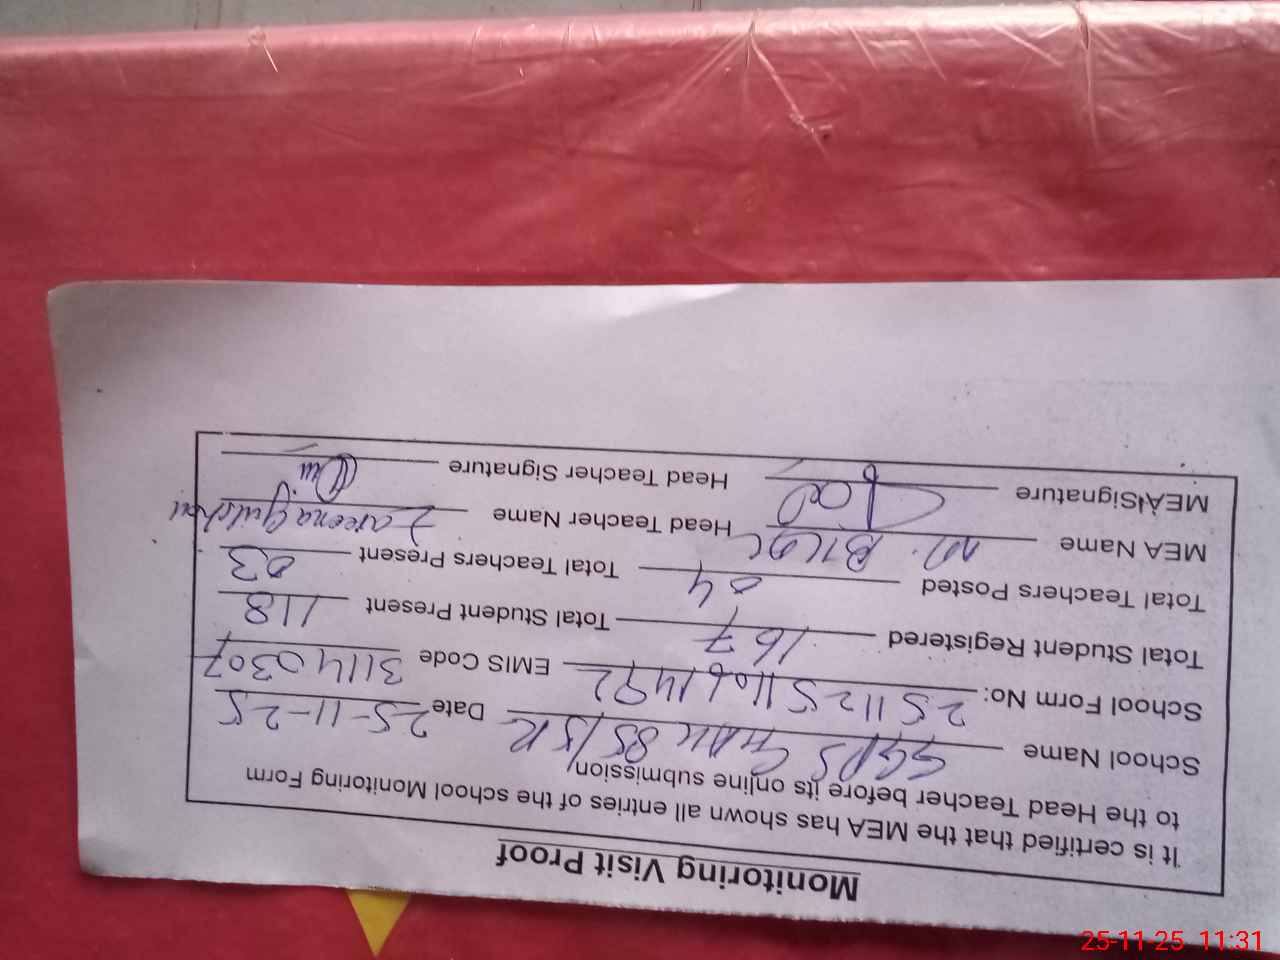 Monitoring Visit Proof
It is certified that the MEA has shown all entries of the school Monitoring Form
to the Head Teacher before its online submission
School Name GGPS 85/5R Date 25-11-25
School Form No: EMIS Code 31140307
Total Student Registered 167 Total Student Present 118
Total Teachers Posted 04 Total Teachers Present 03
MEA Name M. Bilal Head Teacher Name Zareena
MEA Signature Head Teacher Signature
25-11-25 11:31